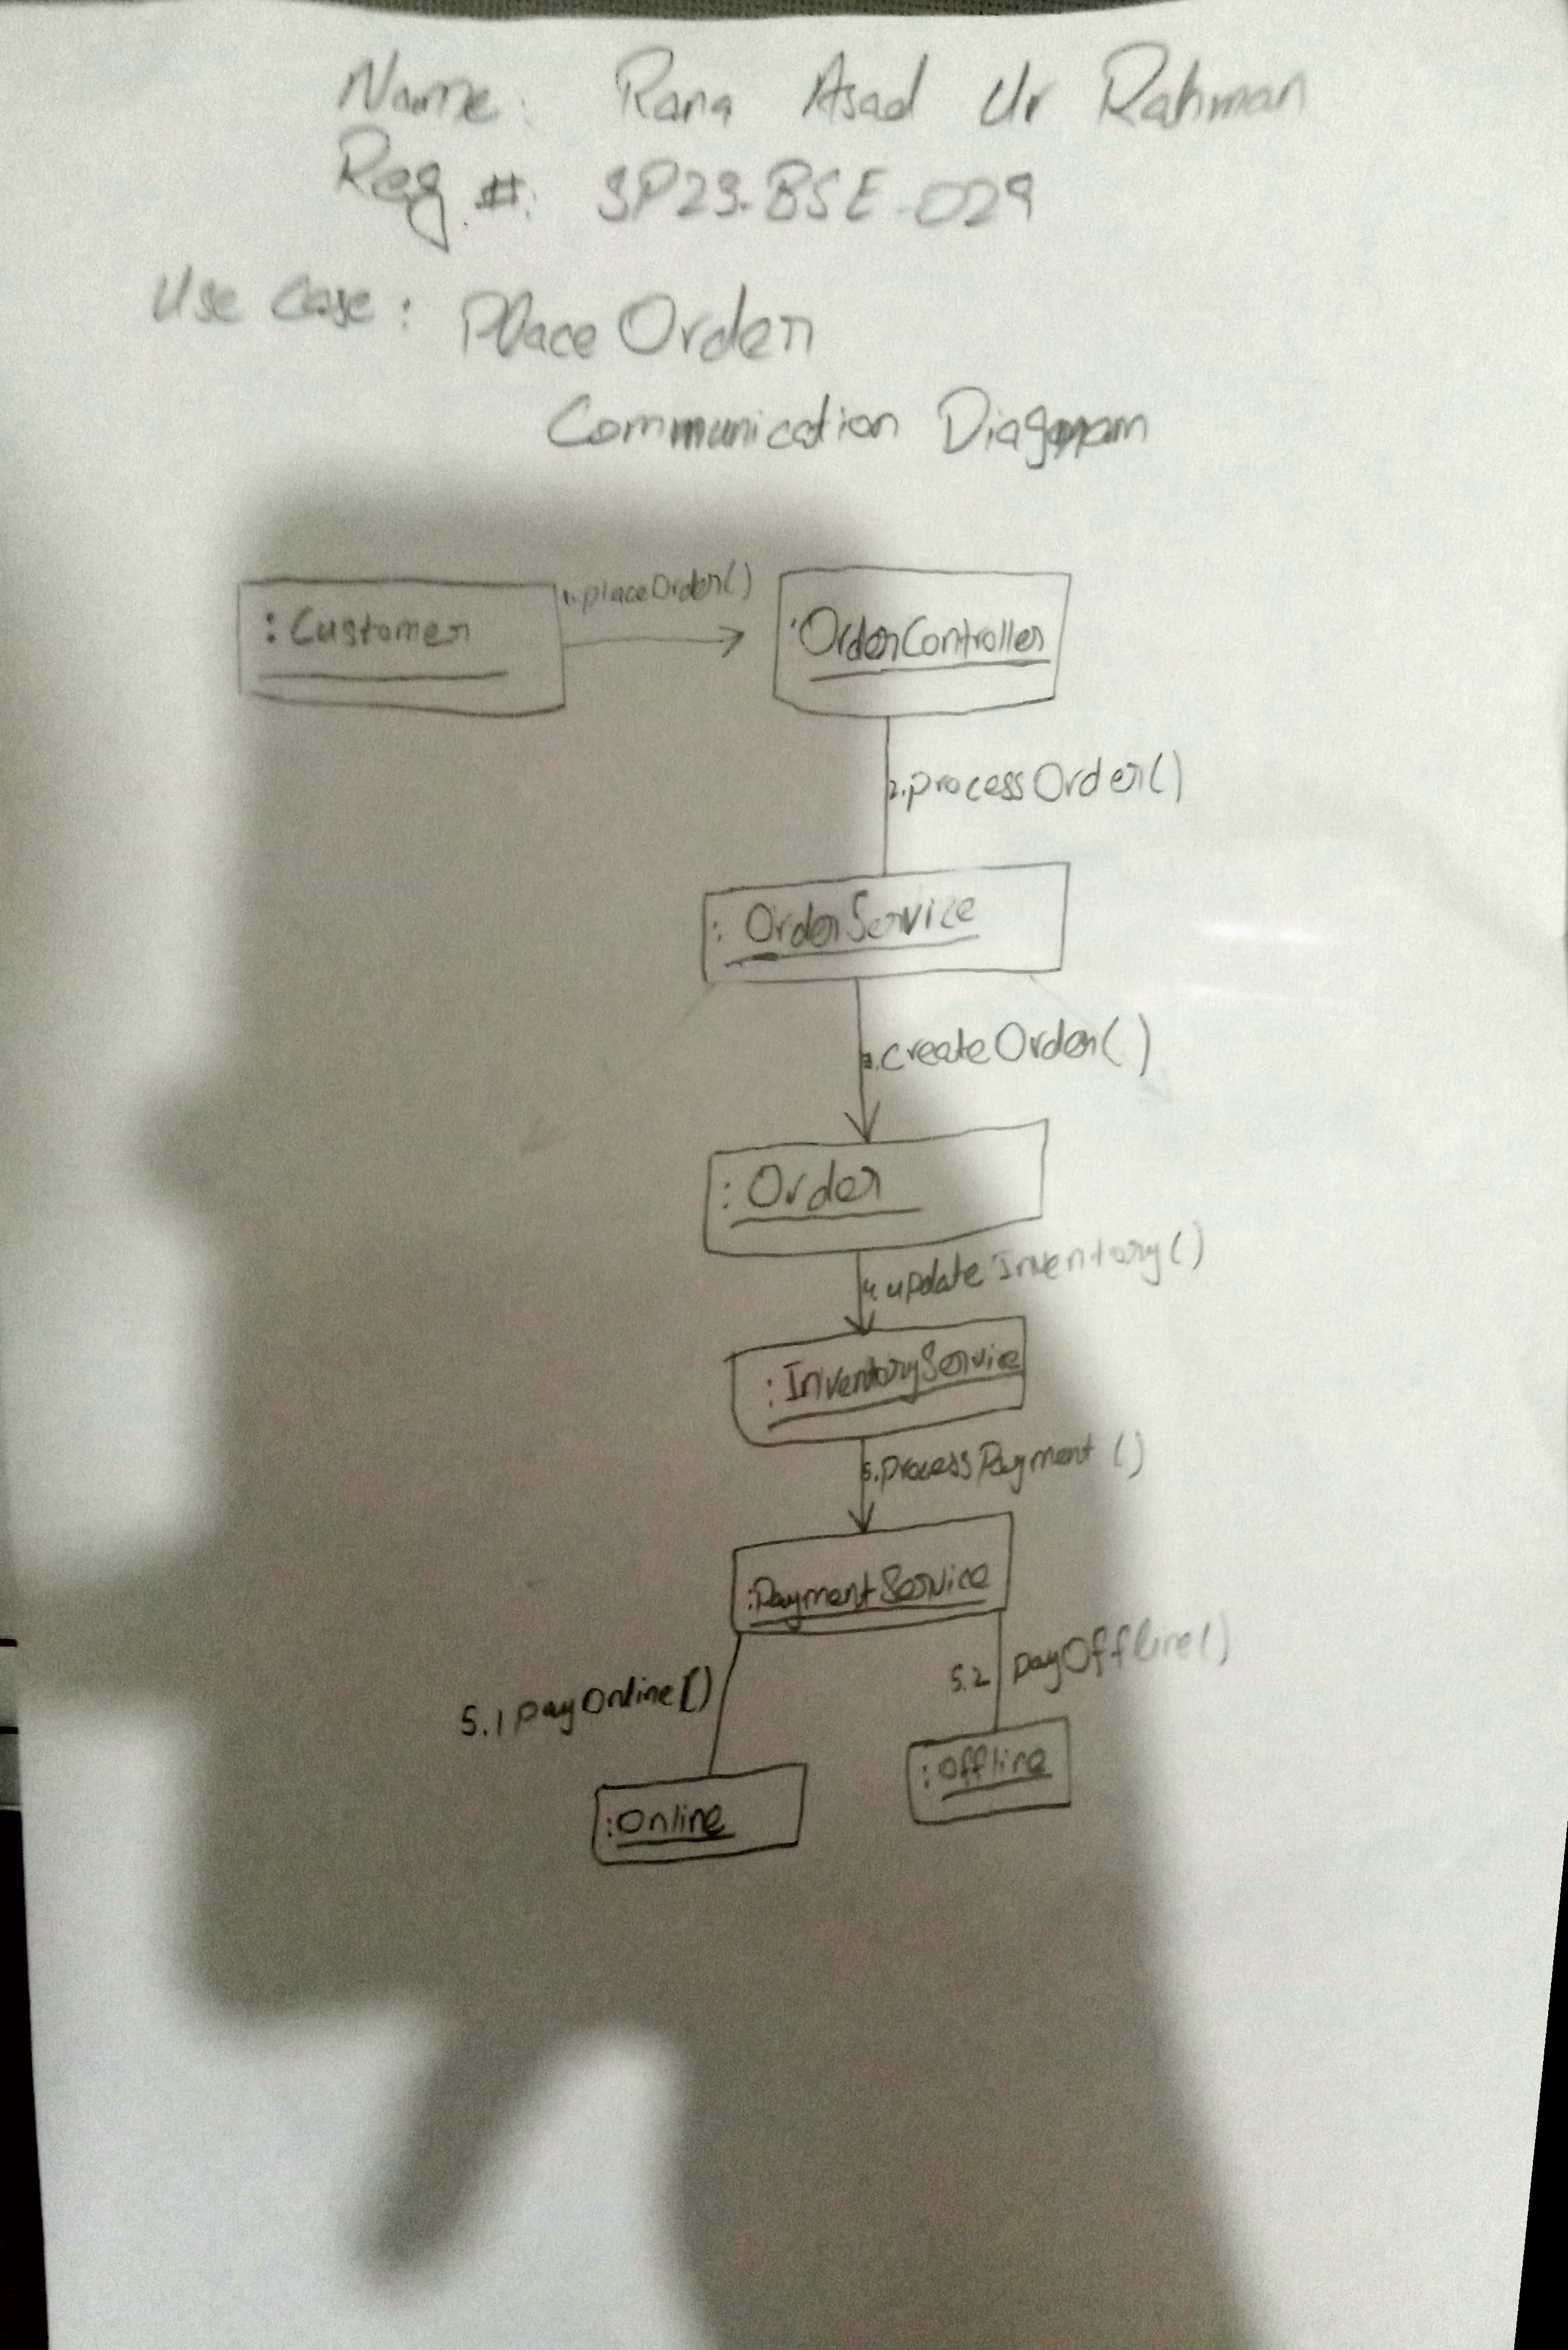 Name: Rana Asad Ur Rahman
Reg #: SP23-BSE-029
Use Case: Place Order
Communication Diagram
:Customer
1.placeOrder()
:OrderController
2.processOrder()
: OrderService
3.createOrder()
: Order
4.updateInventory()
:InventoryService
5.processPayment()
:PaymentService
5.1 payOnline()
5.2 payOffline()
:Online
:Offline